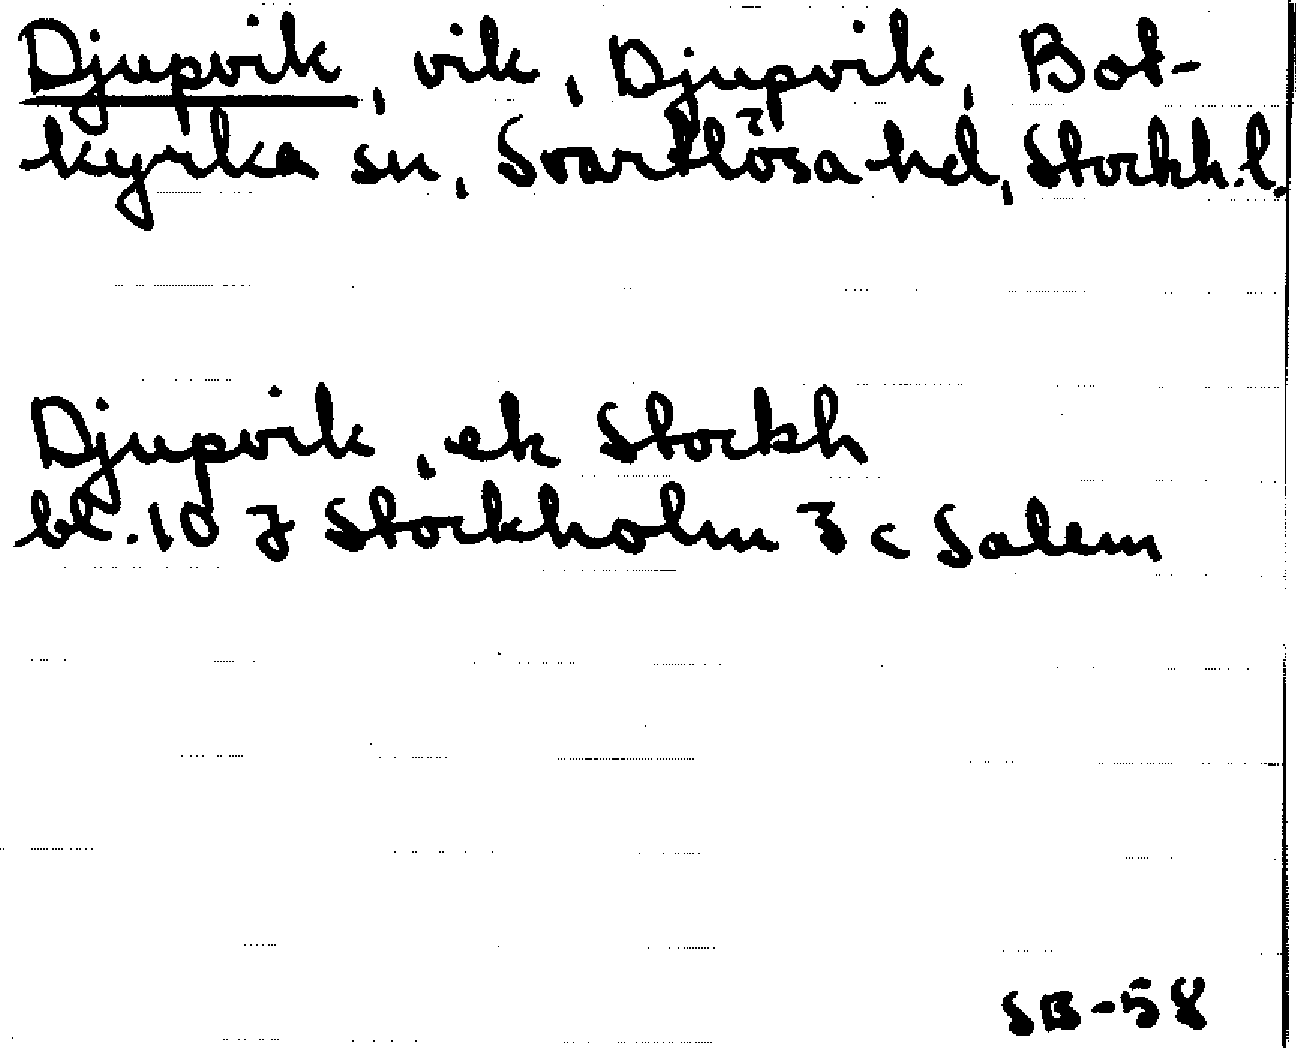 Djupvik, vik, Djupvik, Bot-
kyrka sn, Svartlösa hd, Stockh. l.
Djupvik, ek Stockh
bl. 10 J Stockholm 3 c Salem
SB-58